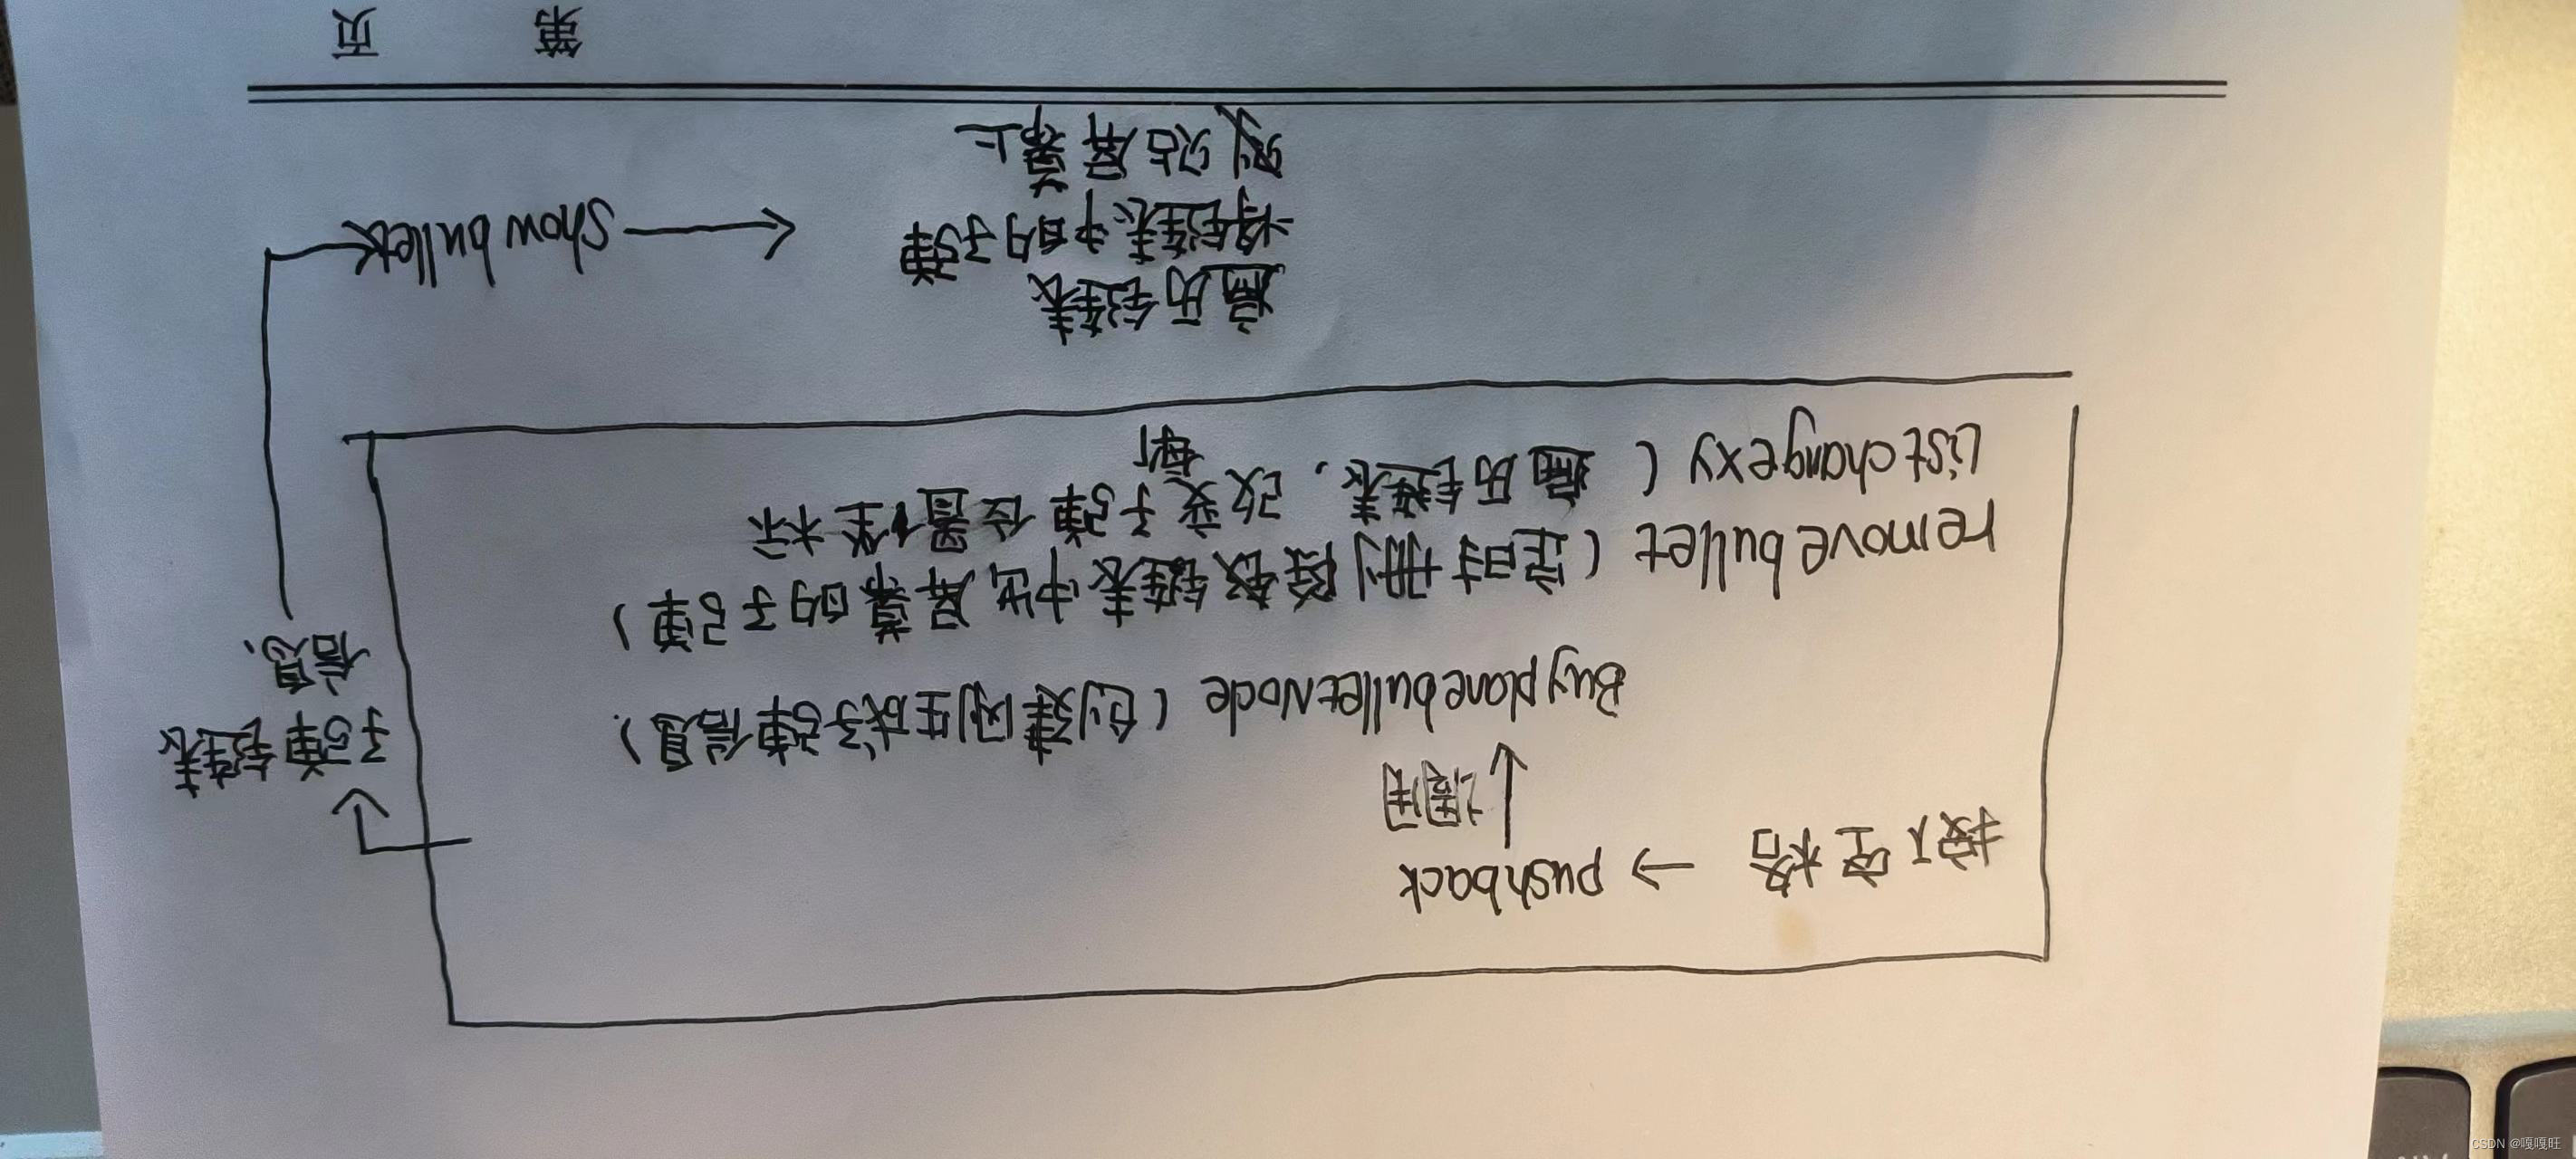 按下空格 → pushback
↓调用
Buy planebulletNode (创建刚生成子弹信息)
子弹链表
信息.
remove bullet (定时删除链表中出屏幕的子弹)
List changexy (遍历链表, 改变每个子弹位置坐标
遍历链表
将链表中的子弹
贴屏幕上
Show bullet
第 页
CSDN @嘎嘎旺